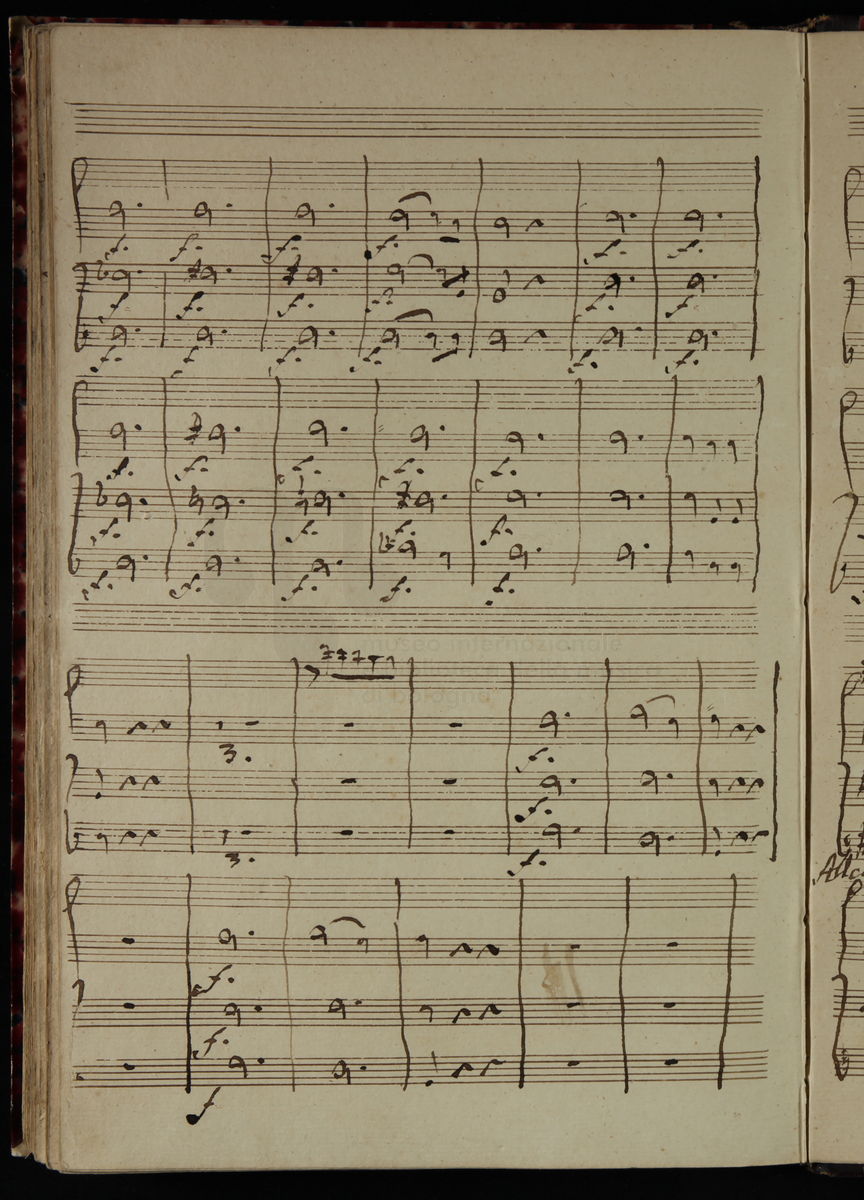 f. f. f. f. f. f.
f. f. f. f. f.
f. f. f. f. f. f.
f. f. f. f. f.
f. f. f. f. f.
f. f. f. f. f.
museo internazionale
e biblioteca della musica
di bologna
3. f.
f.
3. f.
f.
f.
f